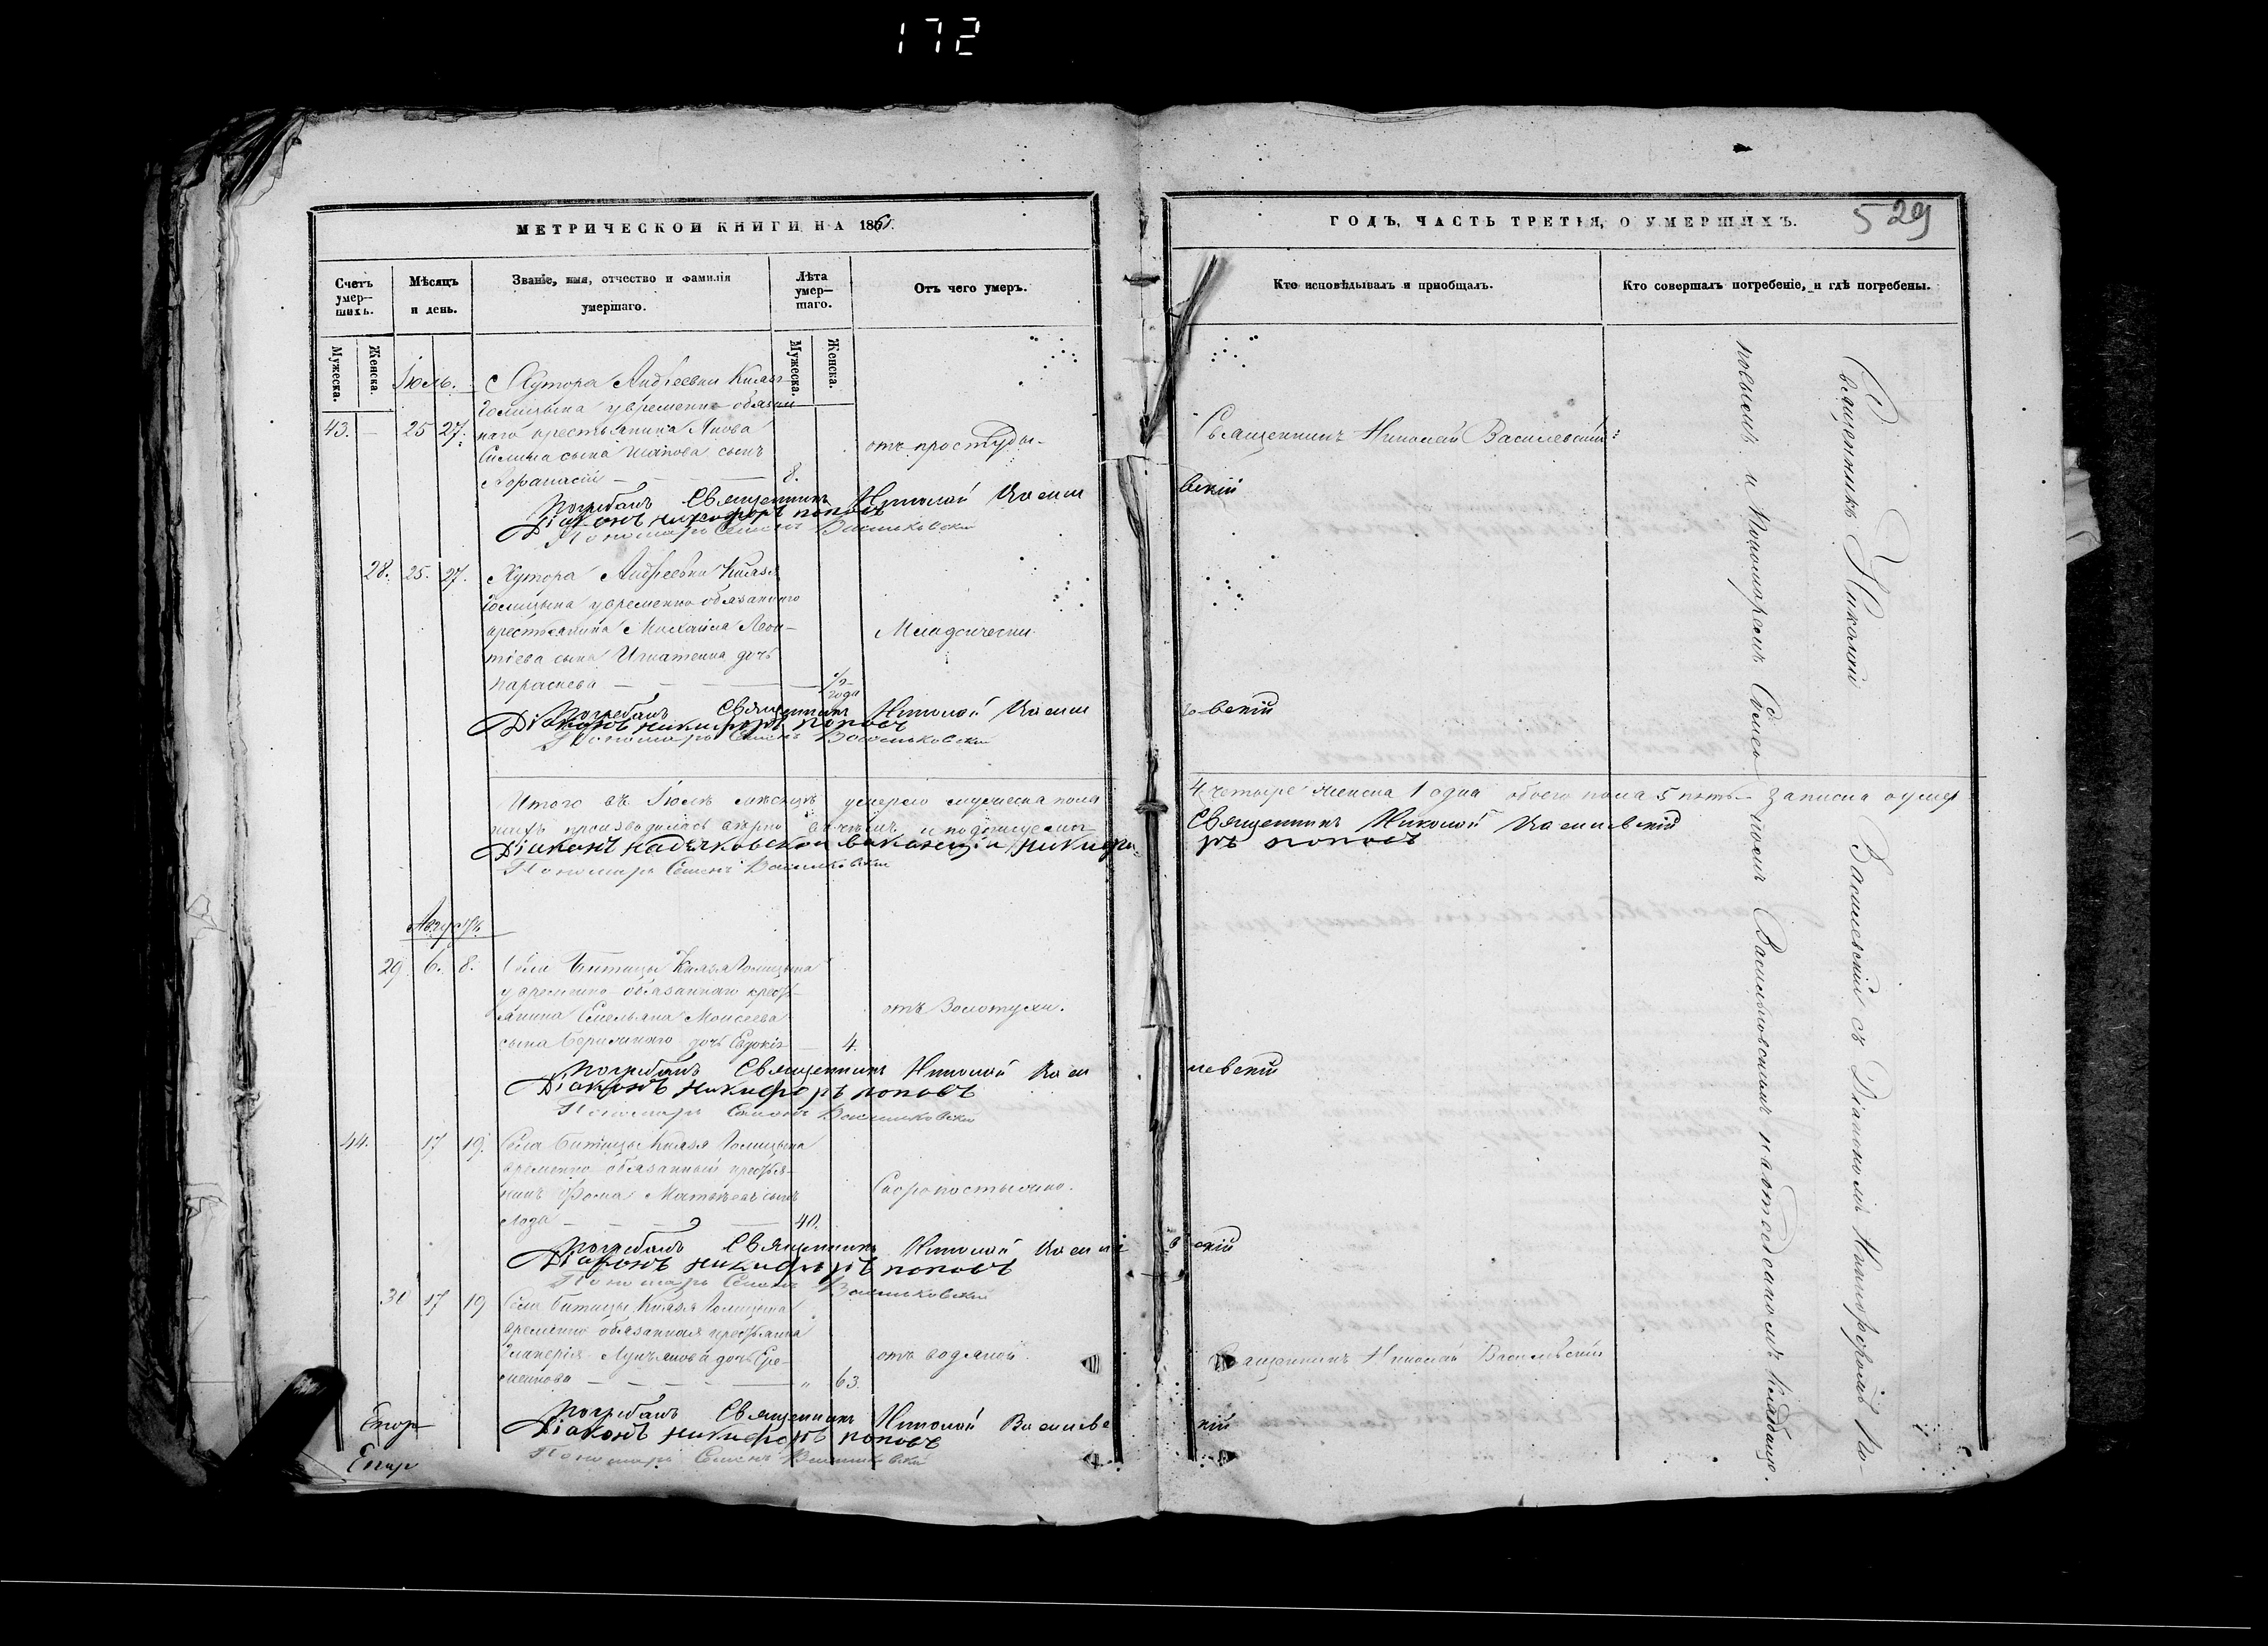 172
МЕТРИЧЕСКОЙ КНИГИ НА 1861.
ГОДЪ, ЧАСТЬ ТРЕТІЯ, О УМЕРШИХЪ.
529
Счетъ умер—шихъ.
Мѣсяцъ и день.
Званіе, имя, отчество и фамилія умершаго.
Лѣта умер—шаго.
Отъ чего умеръ.
Кто исповѣдывалъ и пріобщалъ.
Кто совершалъ погребеніе, и гдѣ погребены.
Мужеска.
Женска.
Мужеска.
Женска.
Іюль.
Хутора Андреевки Князя
Голицына временно-обязан
43. — 25 27. наго крестьянина Якова
сына сынъ
Афанасій — 8.
отъ простуды.
Священникъ Николай Василевскій
Погребалъ Священникъ Николай Василевскій
Діаконъ Никифоръ Поповъ
Пономарь Семенъ Васильковскій
28. 25. 27. Хутора Андреевки Князя
Голицына временно-обязаннаго
крестьянина Михаила Леон—
тіева сына Игнатенка дочь
Параскева — 1/2 года
Младенчески
Погребалъ Священникъ Николай Василевскій
Діаконъ Никифоръ Поповъ
Пономарь Семенъ Васильковскій
Итого въ Іюлѣ мѣсяцѣ умерло мужеска пола 4 четыре женска 1 одна обоего пола 5 пять. Записка о умер
шихъ производилась вѣрно въ чемъ и подписуемся Священникъ Николай Василевскій
Діаконъ на дьяковской вакансіи Никифоръ Поповъ
Пономарь Семенъ Васильковскій
Августъ.
29. 6. 8. Села Битицы Князя Голицына
временно-обязаннаго кресть—
янина Емельяна Моисеева
сына дочь Евдокія — 4.
отъ Золотухи.
Погребалъ Священникъ Николай Василевскій
Діаконъ Никифоръ Поповъ
Пономарь Семенъ Васильковскій
44. 17 19. Села Битицы Князя Голицына
временно-обязанный крестья—
нинъ Фома Матвѣевъ сынъ
Лоза — 40.
Скоропостижно.
Погребалъ Священникъ Николай Василевскій
Діаконъ Никифоръ Поповъ
Пономарь Семенъ Васильковскій
30 17 19 Села Битицы Князя Голицына
временно обязанная крестьянка
Гликерія Лукьянова дочь
— „ 63.
отъ водяной.
Священникъ Николай Василевскій
Погребалъ Священникъ Николай Василевскій
Діаконъ Никифоръ Поповъ
Пономарь Семенъ Васильковскій
Священникъ Николай Василевскій съ Діакономъ Никифоромъ По—
повымъ и Пономаремъ Семеономъ Васильковскимъ на отведеномъ кладбище.